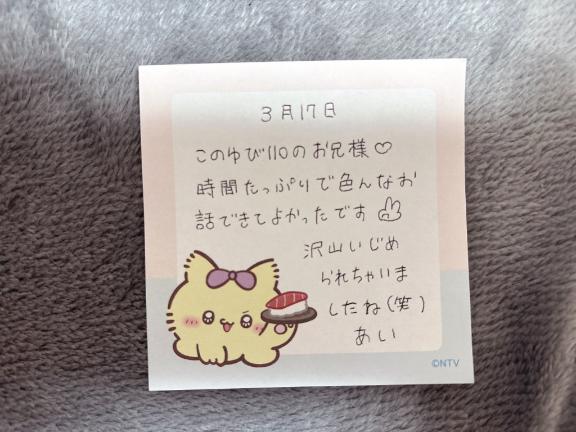 3月17日
このゆび110のお兄様♡
時間たっぷりで色んなお
話できてよかったです✌
沢山いじめ
られちゃいま
したね(笑)
あい
©NTV